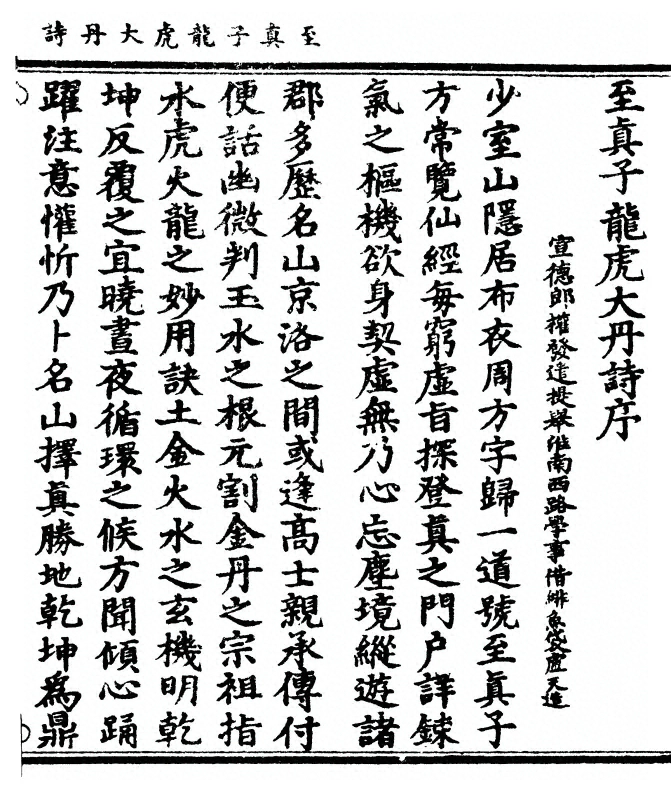 至真子龍虎大丹詩
至眞子龍虎大丹詩序
宣德郎權發遣提舉淮南西路學事借緋魚袋盧天造
少室山隱居布衣周方字歸一道號至眞子
方常覽仙經每窮虛旨探登眞之門户詳鍊
氣之樞機欲身契虛無乃心忘塵境縱遊諸
郡多歷名山京洛之間或逢高士親承傳付
便話幽微判玉水之根元割金丹之宗祖指
水虎火龍之妙用訣土金火水之玄機明乾
坤反覆之宜曉晝夜循環之候方聞傾心踊
躍注意懽忻乃卜名山擇眞勝地乾坤爲鼎